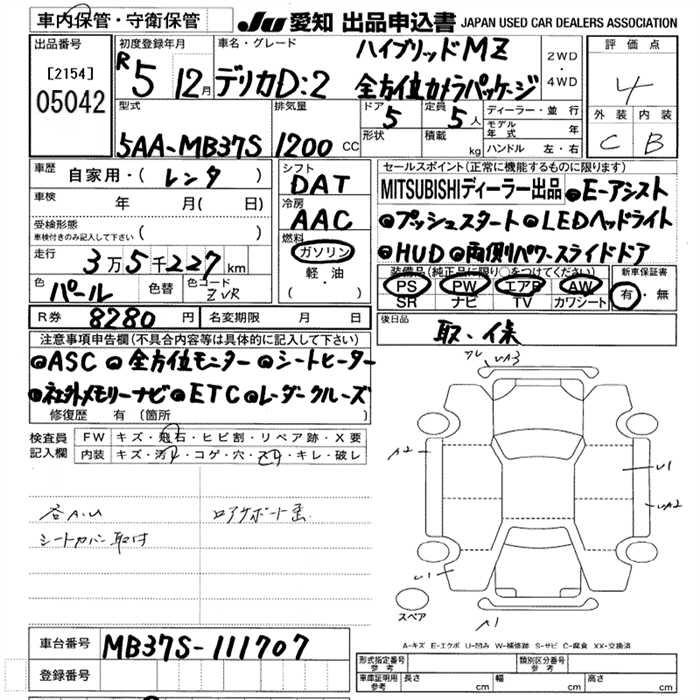 車内保管・守衛保管
JU 愛知 出品申込書 JAPAN USED CAR DEALERS ASSOCIATION
出品番号
[2154]
05042
初度登録年月
R5 12月
車名・グレード
デリカD:2
ハイブリッドMZ
全方位カメラパッケージ
2WD
・
4WD
評価点
4
外装 内装
C B
型式
5AA-MB37S
排気量
1200 CC
ドア
5
定員
5人
形状
積載
kg
ディーラー・並行
モデル年式 年
ハンドル 左・右
車歴
自家用・(レンタ)
車検
年 月( 日)
受検形態
車検付きのみ記入して下さい ( )
走行
3万5千227km
色
パール
色替
色コード
ZVR
R券 8280円
名変期限 月 日
シフト
DAT
冷房
AAC
燃料
ガソリン
軽・油
( )
セールスポイント(正常に機能するものに限ります)
MITSUBISHIディーラー出品 ●E-アシスト
●プッシュスタート ●LEDヘッドライト
●HUD ●両側パワースライドドア
装備品(純正品に限り○をつけてください)
PS PW エアB AW
SR ナビ TV カワシート
新車保証書
有・無
後日品
取、保
注意事項申告欄(不具合内容等は具体的に記入して下さい)
●ASC ●全方位モニター ●シートヒーター
●社外メモリーナビ ●ETC ●レーダークルーズ
修復歴 有 (箇所 )
検査員記入欄
FW キズ・飛石・ヒビ割・リペア跡・X要
内装 キズ・汚れ・コゲ・穴・スレ・キレ・破レ
各A.U
シートカバー取付
A2
UA3
U1
UA2
U1
A1
スペア
A-キズ E-エクボ U-凹み W-補修跡 S-サビ C-腐食 XX-交換済
車台番号 MB37S-111707
登録番号
形式指定番号 参考
類別区分番号 参考
車庫証明用 参考
長さ cm
幅 cm
高さ cm